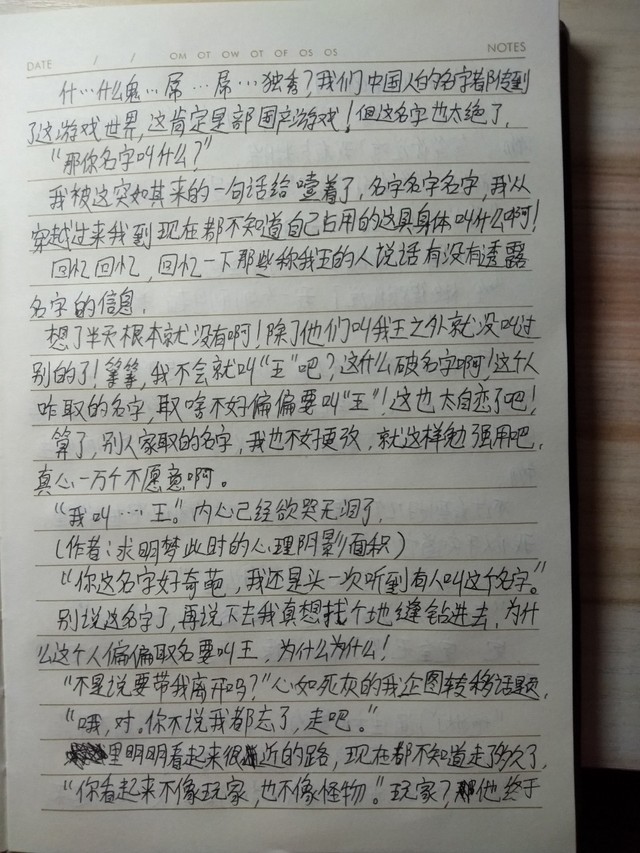 DATE / / OM OT OW OT OF OS OS NOTES
什…什么鬼…屌…屌…独秀？我们中国人的名字都传到
了这游戏世界，这肯定是部国产游戏！但这名字也太绝了。
“那你名字叫什么？”
我被这突如其来的一句话给噎着了，名字名字名字，我从
穿越过来我到现在都不知道自己占用的这具身体叫什么啊！
回忆回忆，回忆一下那些称我王的人说话有没有透露
名字的信息。
想了半天根本就没有啊！除了他们叫我王之外就没叫过
别的了！等等，我不会就叫“王”吧？这什么破名字啊！这个人
咋取的名字，取啥不好偏偏要叫“王”！这也太自恋了吧！
算了，别人家取的名字，我也不好更改，就这样勉强用吧，
真心一万个不愿意啊。
“我叫…王。”内心已经欲哭无泪了。
（作者：求明梦此时的心理阴影面积）
“你这名字好奇葩，我还是头一次听到有人叫这个名字。”
别说这名字了，再说下去我真想找个地缝钻进去，为什
么这个人偏偏取名要叫王，为什么为什么！
“不是说要带我离开吗？”心如死灰的我企图转移话题。
“哦，对。你不说我都忘了，走吧。”
明明看起来很近的路，现在都不知道走了多久了。
“你看起来不像玩家，也不像怪物。”玩家？那他终于